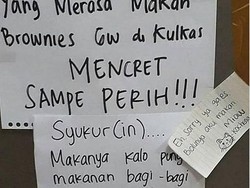 yang Merasa Makan
Brownies Gw di Kulkas
MENCRET
SAMPE PERIH!!!
Syukur(in)....
Makanya kalo pun
makanan bagi-bagi
Eh sorry ya gaes
aku makan